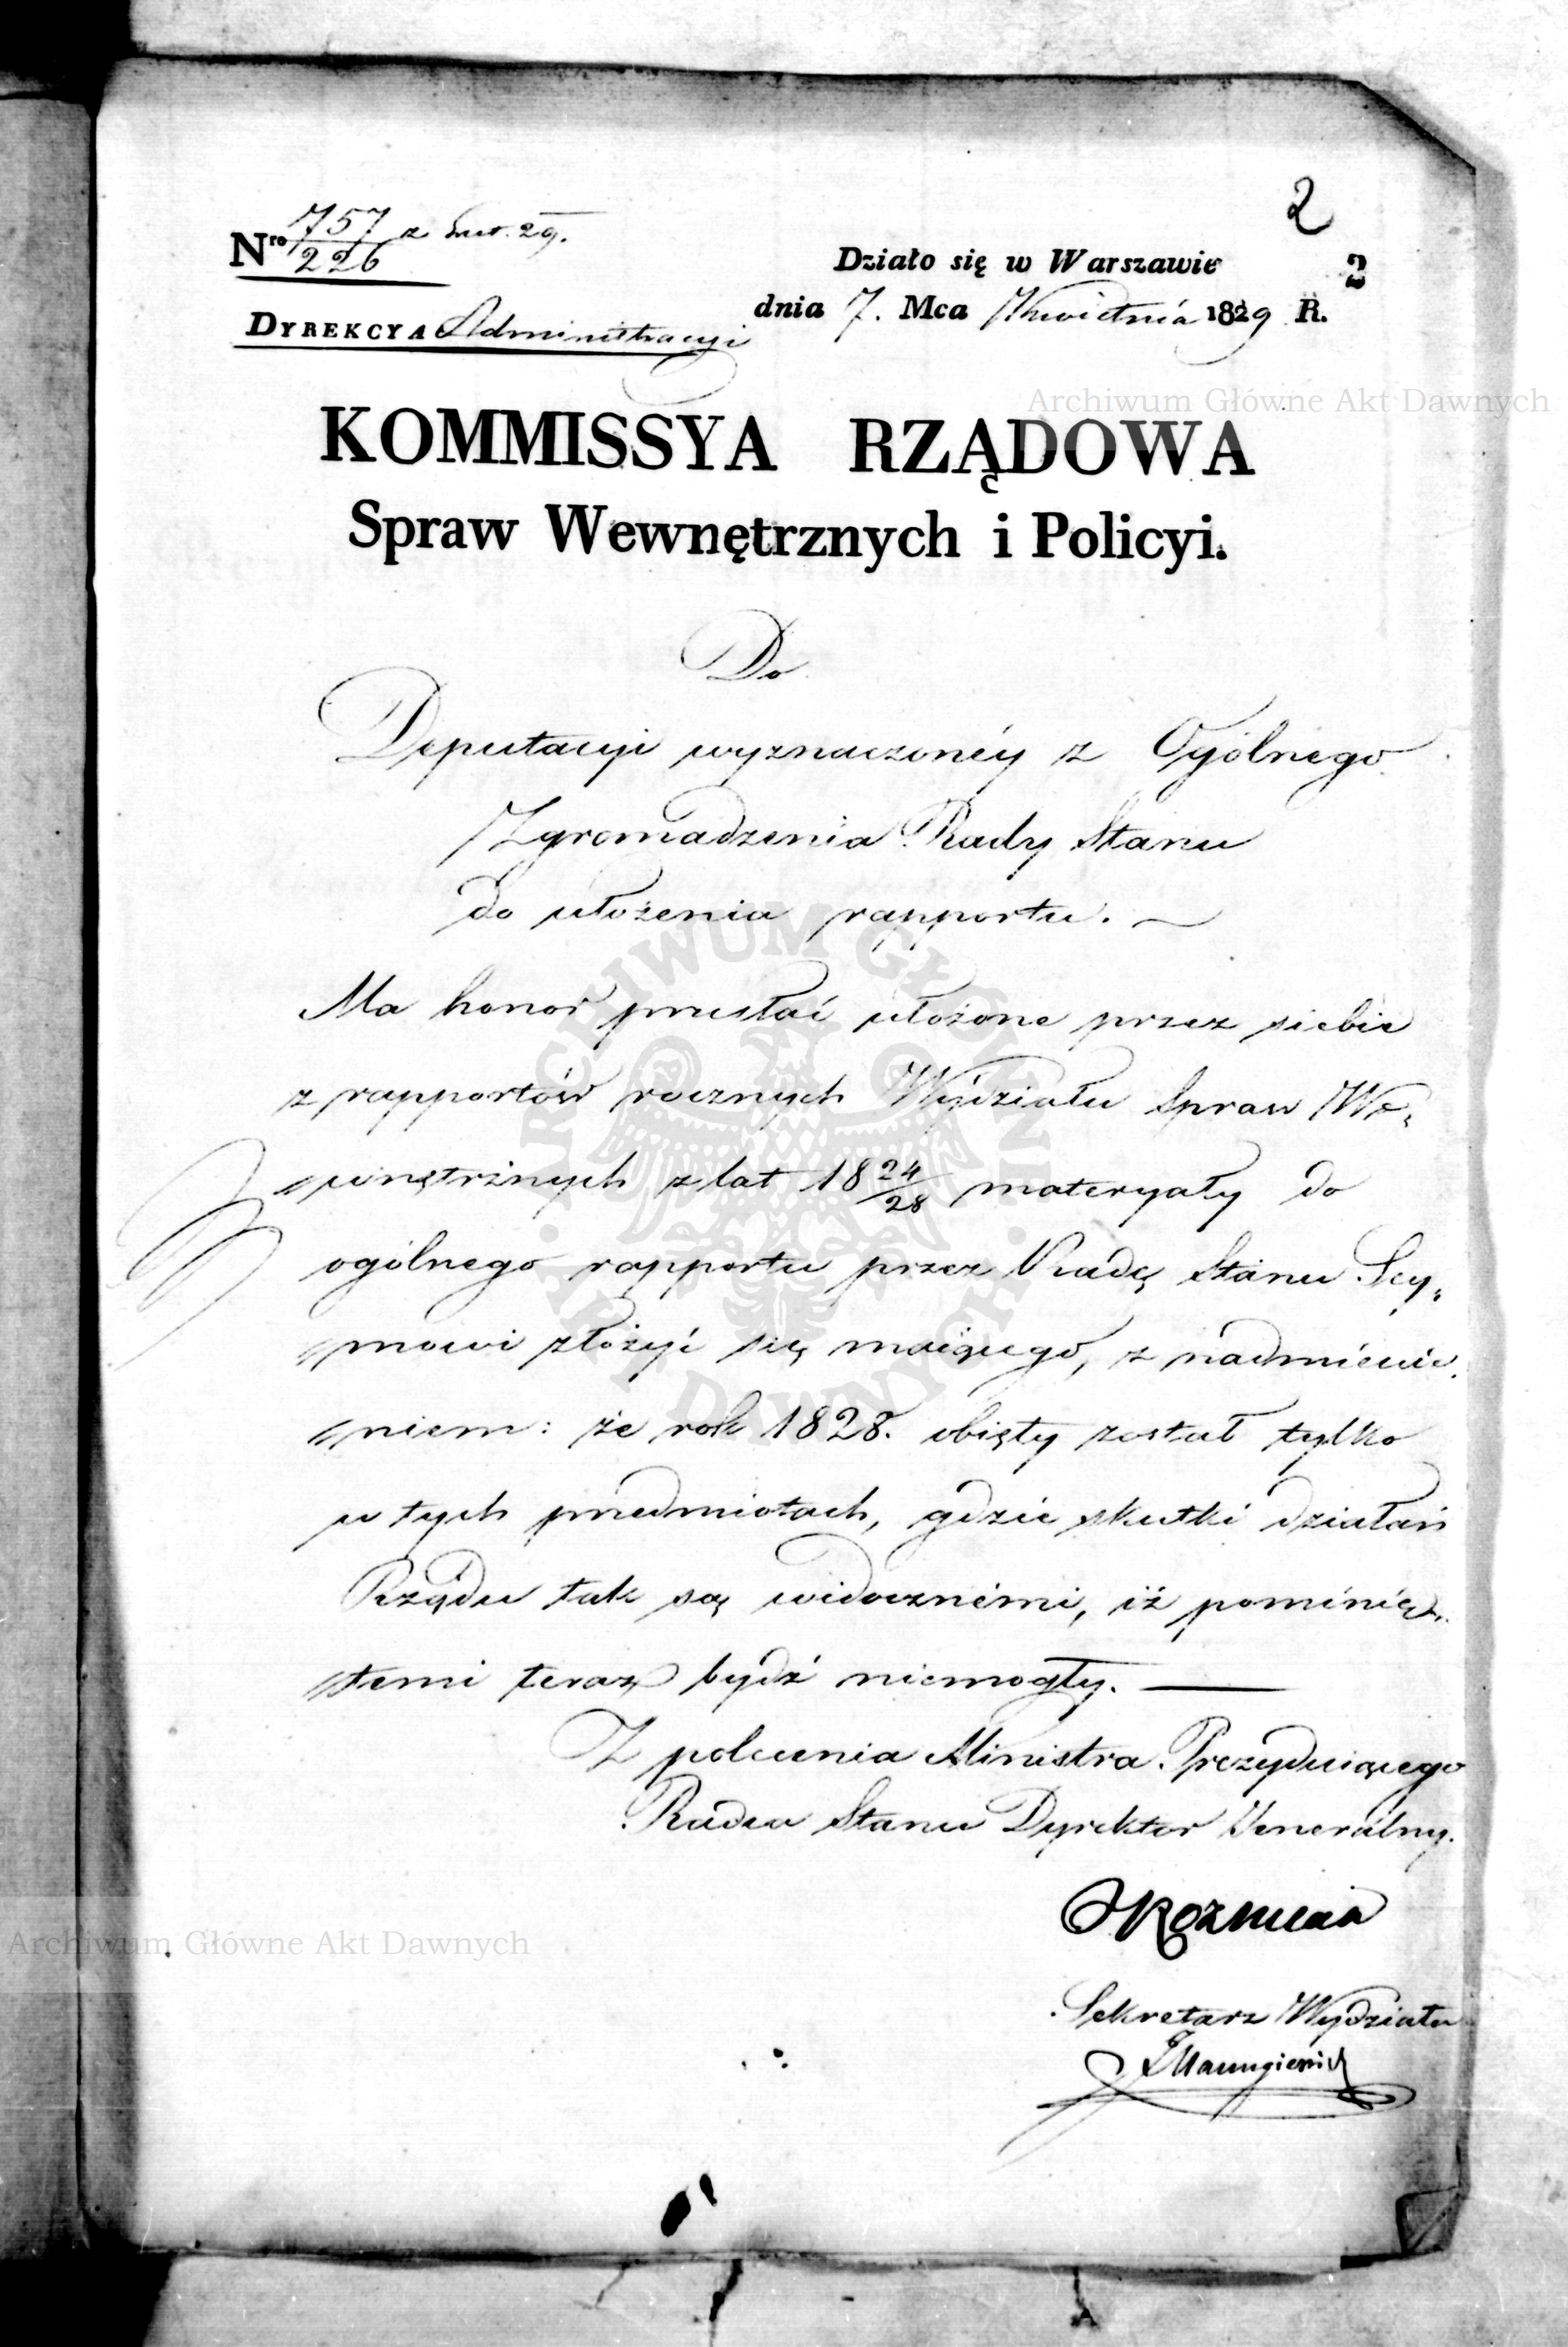 2
Nro 757/226 z 29.
Działo się w Warszawie 2
dnia 7. Mca Kwietnia 1829 R.
DYREKCYA Administracyi
KOMMISSYA RZĄDOWA
Spraw Wewnętrznych i Policyi.
Do
Deputacyi wyznaczonéy z Ogólnego
Zgromadzenia Rady Stanu
do ułożenia rapportu. —
Ma honor przesłać ułożone przez siebie
z rapportów rocznych Wydziału Spraw We„
„wnętrznych z lat 18 24/28 materyały do
ogólnego rapportu przez Radę Stanu Sey„
„mowi złożyć się maiącego, z nadmienie„
„niem: że rok 1828. obięty został tylko
w tych przedmiotach, gdzie skutki działań
Rządu tak są widocznémi, iż pominię„
„temi teraz bydź niemogły. —
Z polecenia Ministra Prezyduiącego
Radca Stanu Dyrektor Jeneralny.
Koźmian
Sekretarz Wydziału
Archiwum Główne Akt Dawnych
ARCHIWUM GŁÓWNE AKT DAWNYCH
Archiwum Główne Akt Dawnych